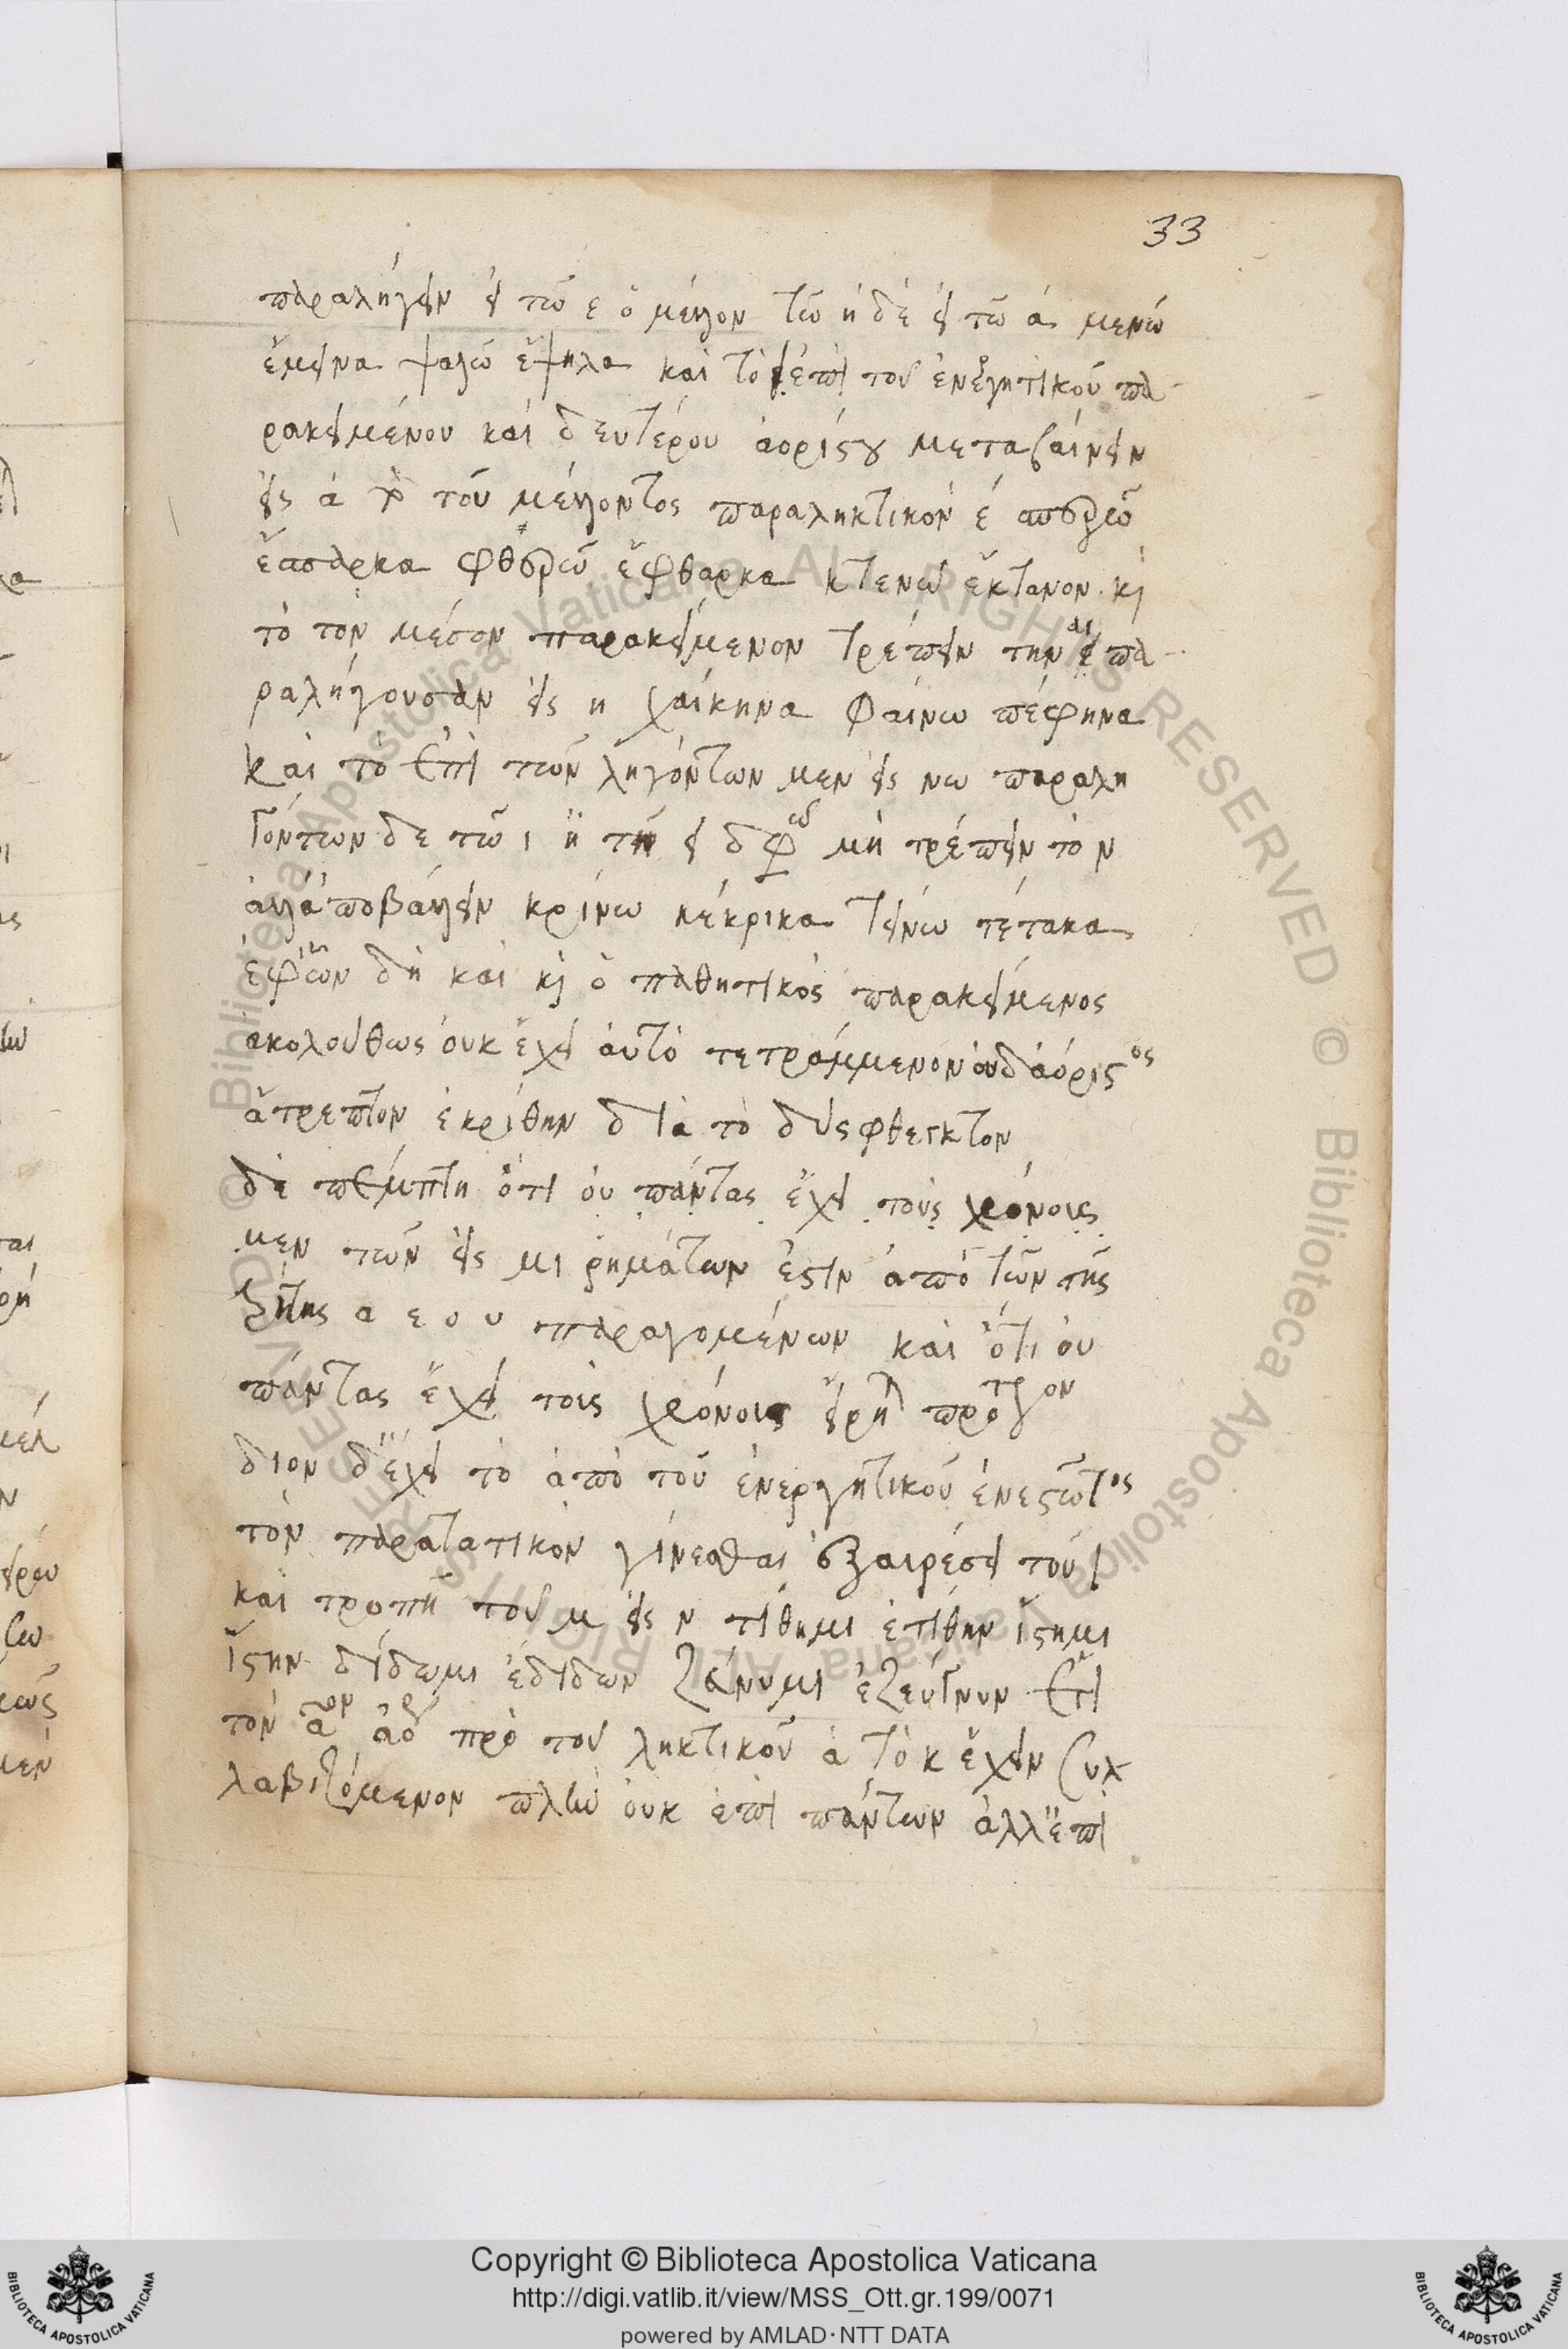 33
παραλήγειν εἰ τῶ ε ὁ μέλλον τῶ η δὲ εἰ τῶ ά μενῶ
ἔμεινα ψαλῶ ἔψηλα καὶ τὸ ἐπὶ τοῦ ἐνεργητικοῦ πα-
ρακειμένου καὶ δευτέρου ἀορίστου μεταβαίνειν
εἰς ά τὸ τοῦ μέλλοντος παραληκτικὸν έ σπερῶ
ἔσπαρκα φθερῶ ἔφθαρκα κτενῶ ἔκτανον. κỳ
τὸ τὸν μέσον παρακείμενον τρέπειν τὴν αι πα-
ραλήγουσαν εἰς η χαίκηνα φαίνω πέφηνα
καὶ τὸ ἐπὶ τῶν ληγόντων μεν εἰς νω παραλη
γόντων δε τῶ ι ἢ τῆ ει μὴ τρέπειν τὸ ν
ἀλλ' ἀποβάλλειν κρίνω κέκρικα τείνω τέτακα
ἐφ' ὧν δὴ καὶ κỳ ὁ παθητικὸς παρακείμενος
ακολούθως ὀυκ ἔχει ἀυτὸ τετραμμένον ὀυδ' ἀόριστος
ἄτρεπτον ἐκρίθην διὰ τὸ δύσφθεγκτον
δὲ πέμπτη ὅτι ὀυ πάντας ἔχει τοὺς χρόνους
μεν τῶν εἰς μι ῥημάτων ἐστὶν ἀπὸ τῶν τῆς
ξ̄της α ε ο υ παραγομένων καὶ ὅτι ὀυ
πάντας ἔχει τοὺς χρόνους εἴρη πρότερον
διον δ' ἔχει τὸ ἀπὸ τοῦ ἐνεργητικοῦ ἐνεστῶτος
τὸν παρατατικὸν γίνεσθαι ἐξαιρέσει τοῦ ι
καὶ τροπῆ τοῦ μ εἰς ν τίθημι ἐτίθην ἵστημι
ἵστην δίδωμι ἐδίδων ζεύγνυμι ἐζεύγνυν ἔτι
τὸν ᾱον ἀόρ πρὸ τοῦ ληκτικοῦ ά τὸ κ ἔχειν συλ-
λαβιζόμενον πλὴν ὀυκ ἐπὶ πάντων ἀλλ' ἐπὶ
Copyright © Biblioteca Apostolica Vaticana
http://digi.vatlib.it/view/MSS_Ott.gr.199/0071
powered by AMLAD·NTT DATA